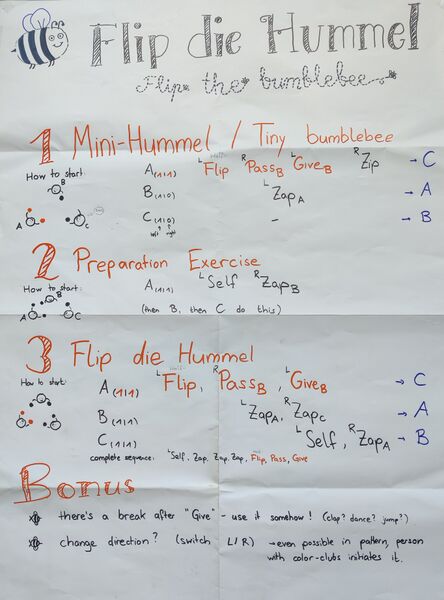 Flip die Hummel
Flip the bumblebee
1 Mini-Hummel / Tiny bumblebee
How to start: A(1|1) L Flip R Pass B L Give B R Zip → C
B
B(1|0) L Zap A → A
A C C(1|0) - → B
left right
2 Preparation Exercise
How to start: A(1|1) L Self R Zap B
B
A C (then B, then C do this)
3 Flip die Hummel
How to start: A(1|1) L Flip, R Pass B, L Give B → C
B(1|1) L Zap A, R Zap C → A
C(1|1) L Self, R Zap A → B
complete sequence: L Self, Zap, Zap, Zap, Flip, Pass, Give
Bonus
there's a break after "Give" - use it somehow! (clap? dance? jump?)
change direction? (switch L/R) → even possible in pattern, person
with color-clubs initiates it.